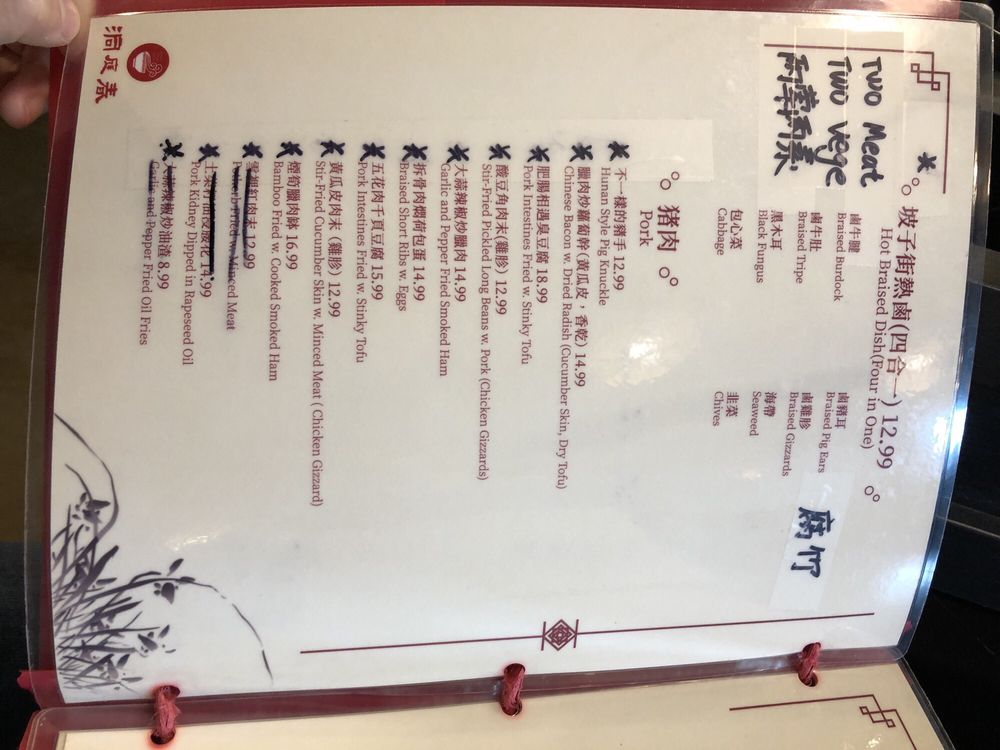 Two Meat
Two Vege
兩葷兩素
坡子街熱鹵(四合一) 12.99
Hot Braised Dish(Four in One)
鹵牛腱
Braised Burdock
鹵豬耳
Braised Pig Ears
鹵牛肚
Braised Tripe
鹵雞胗
Braised Gizzards
腐竹
黑木耳
Black Fungus
海帶
Seaweed
包心菜
Cabbage
韭菜
Chives
猪肉
Pork
不一樣的豬手 12.99
Hunan Style Pig Knuckle
臘肉炒蘿蔔幹 (黃瓜皮，香乾) 14.99
Chinese Bacon w. Dried Radish (Cucumber Skin, Dry Tofu)
肥腸相遇臭豆腐 18.99
Pork Intestines Fried w. Stinky Tofu
酸豆角肉末(雞胗) 12.99
Stir-Fried Pickled Long Beans w. Pork (Chicken Gizzards)
大蒜辣椒炒臘肉 14.99
Garlic and Pepper Fried Smoked Ham
拆骨肉燜荷包蛋 14.99
Braised Short Ribs w. Eggs
五花肉千頁豆腐 15.99
Pork Intestines Fried w. Stinky Tofu
黃瓜皮肉末 (雞胗) 12.99
Stir-Fried Cucumber Skin w. Minced Meat ( Chicken Gizzard)
煙筍臘肉缽 16.99
Bamboo Fried w. Cooked Smoked Ham
雪裡紅肉末 12.99
Potherb Fried w. Minced Meat
土菜籽油浸腰花 14.99
Pork Kidney Dipped in Rapeseed Oil
大蒜辣椒炒油渣 8.99
Garlic and Pepper Fried Oil Fries
洞庭春